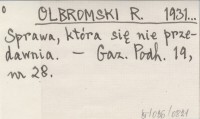 OLBROMSKI R. 1931...
Sprawa, która się nie prze-
dawnia. – Gaz. Podh. 19,
nr 28.